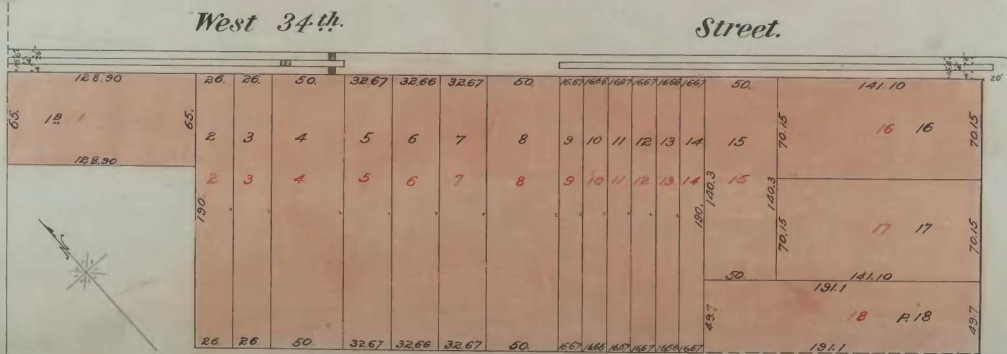 West 34th. Street.
20'
128.90 26. 26. 50. 32.67 32.66 32.67 50. 16.67 16.66 16.67 16.67 16.66 16.67 50. 141.10
65. 1B 1 65.
2 3 4 5 6 7 8 9 10 11 12 13 14 15 70.15 16 16 70.15
128.90
2 3 4 5 6 7 8 9 10 11 12 13 14 15
190. 190. 140.3 140.3
N
70.15 17 17 70.15
50 141.10
191.1
49.7 18 P.18 49.7
26 26. 50. 32.67 32.66 32.67 50. 16.67 16.66 16.67 16.67 16.66 16.67 191.1